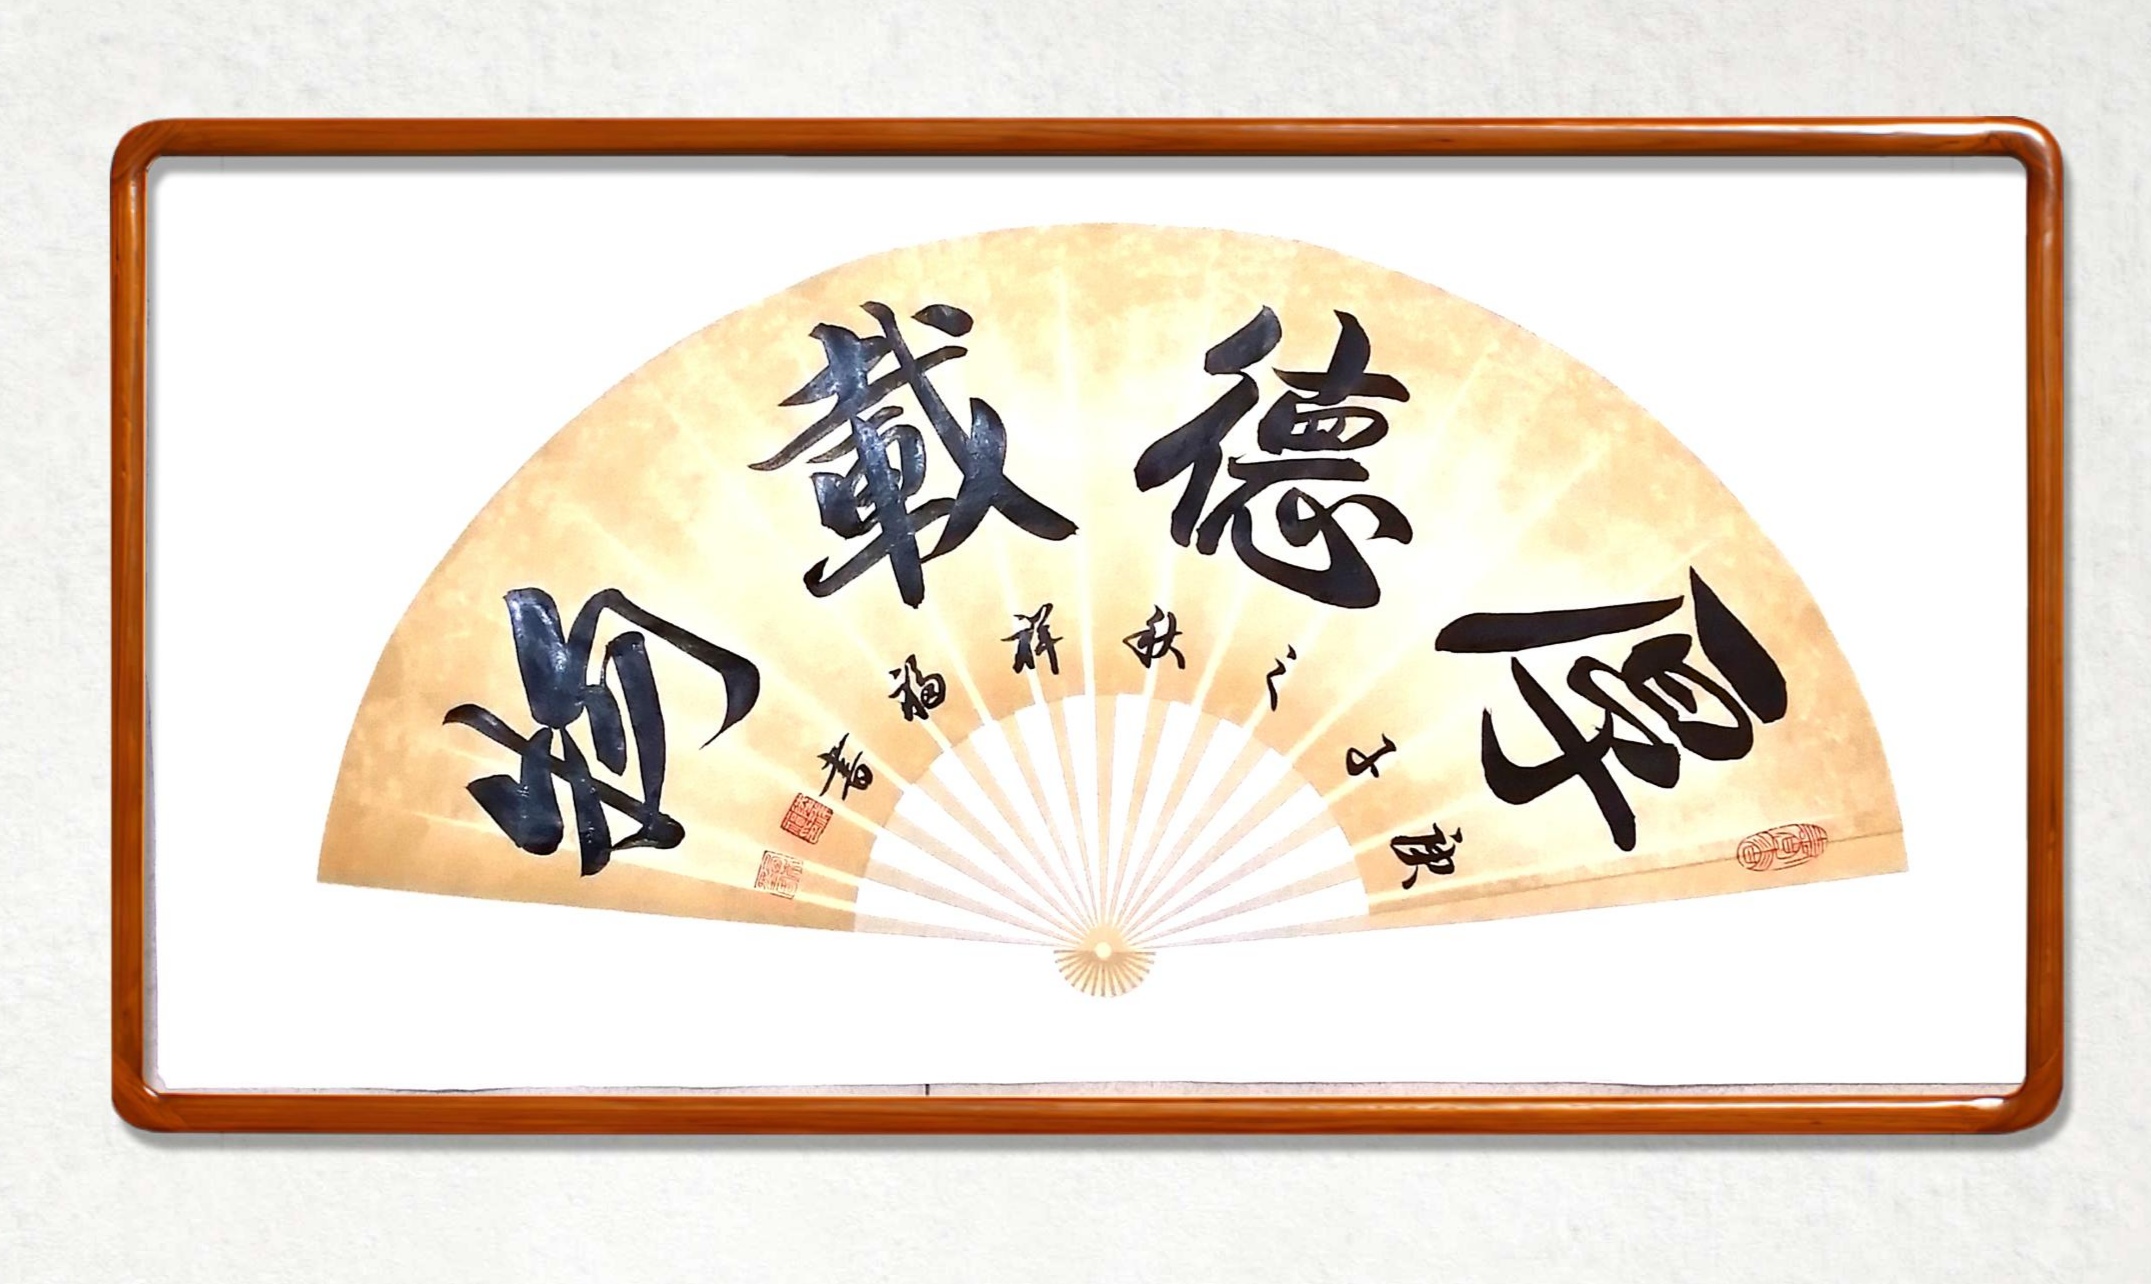 厚德載物
庚子之秋祥福書